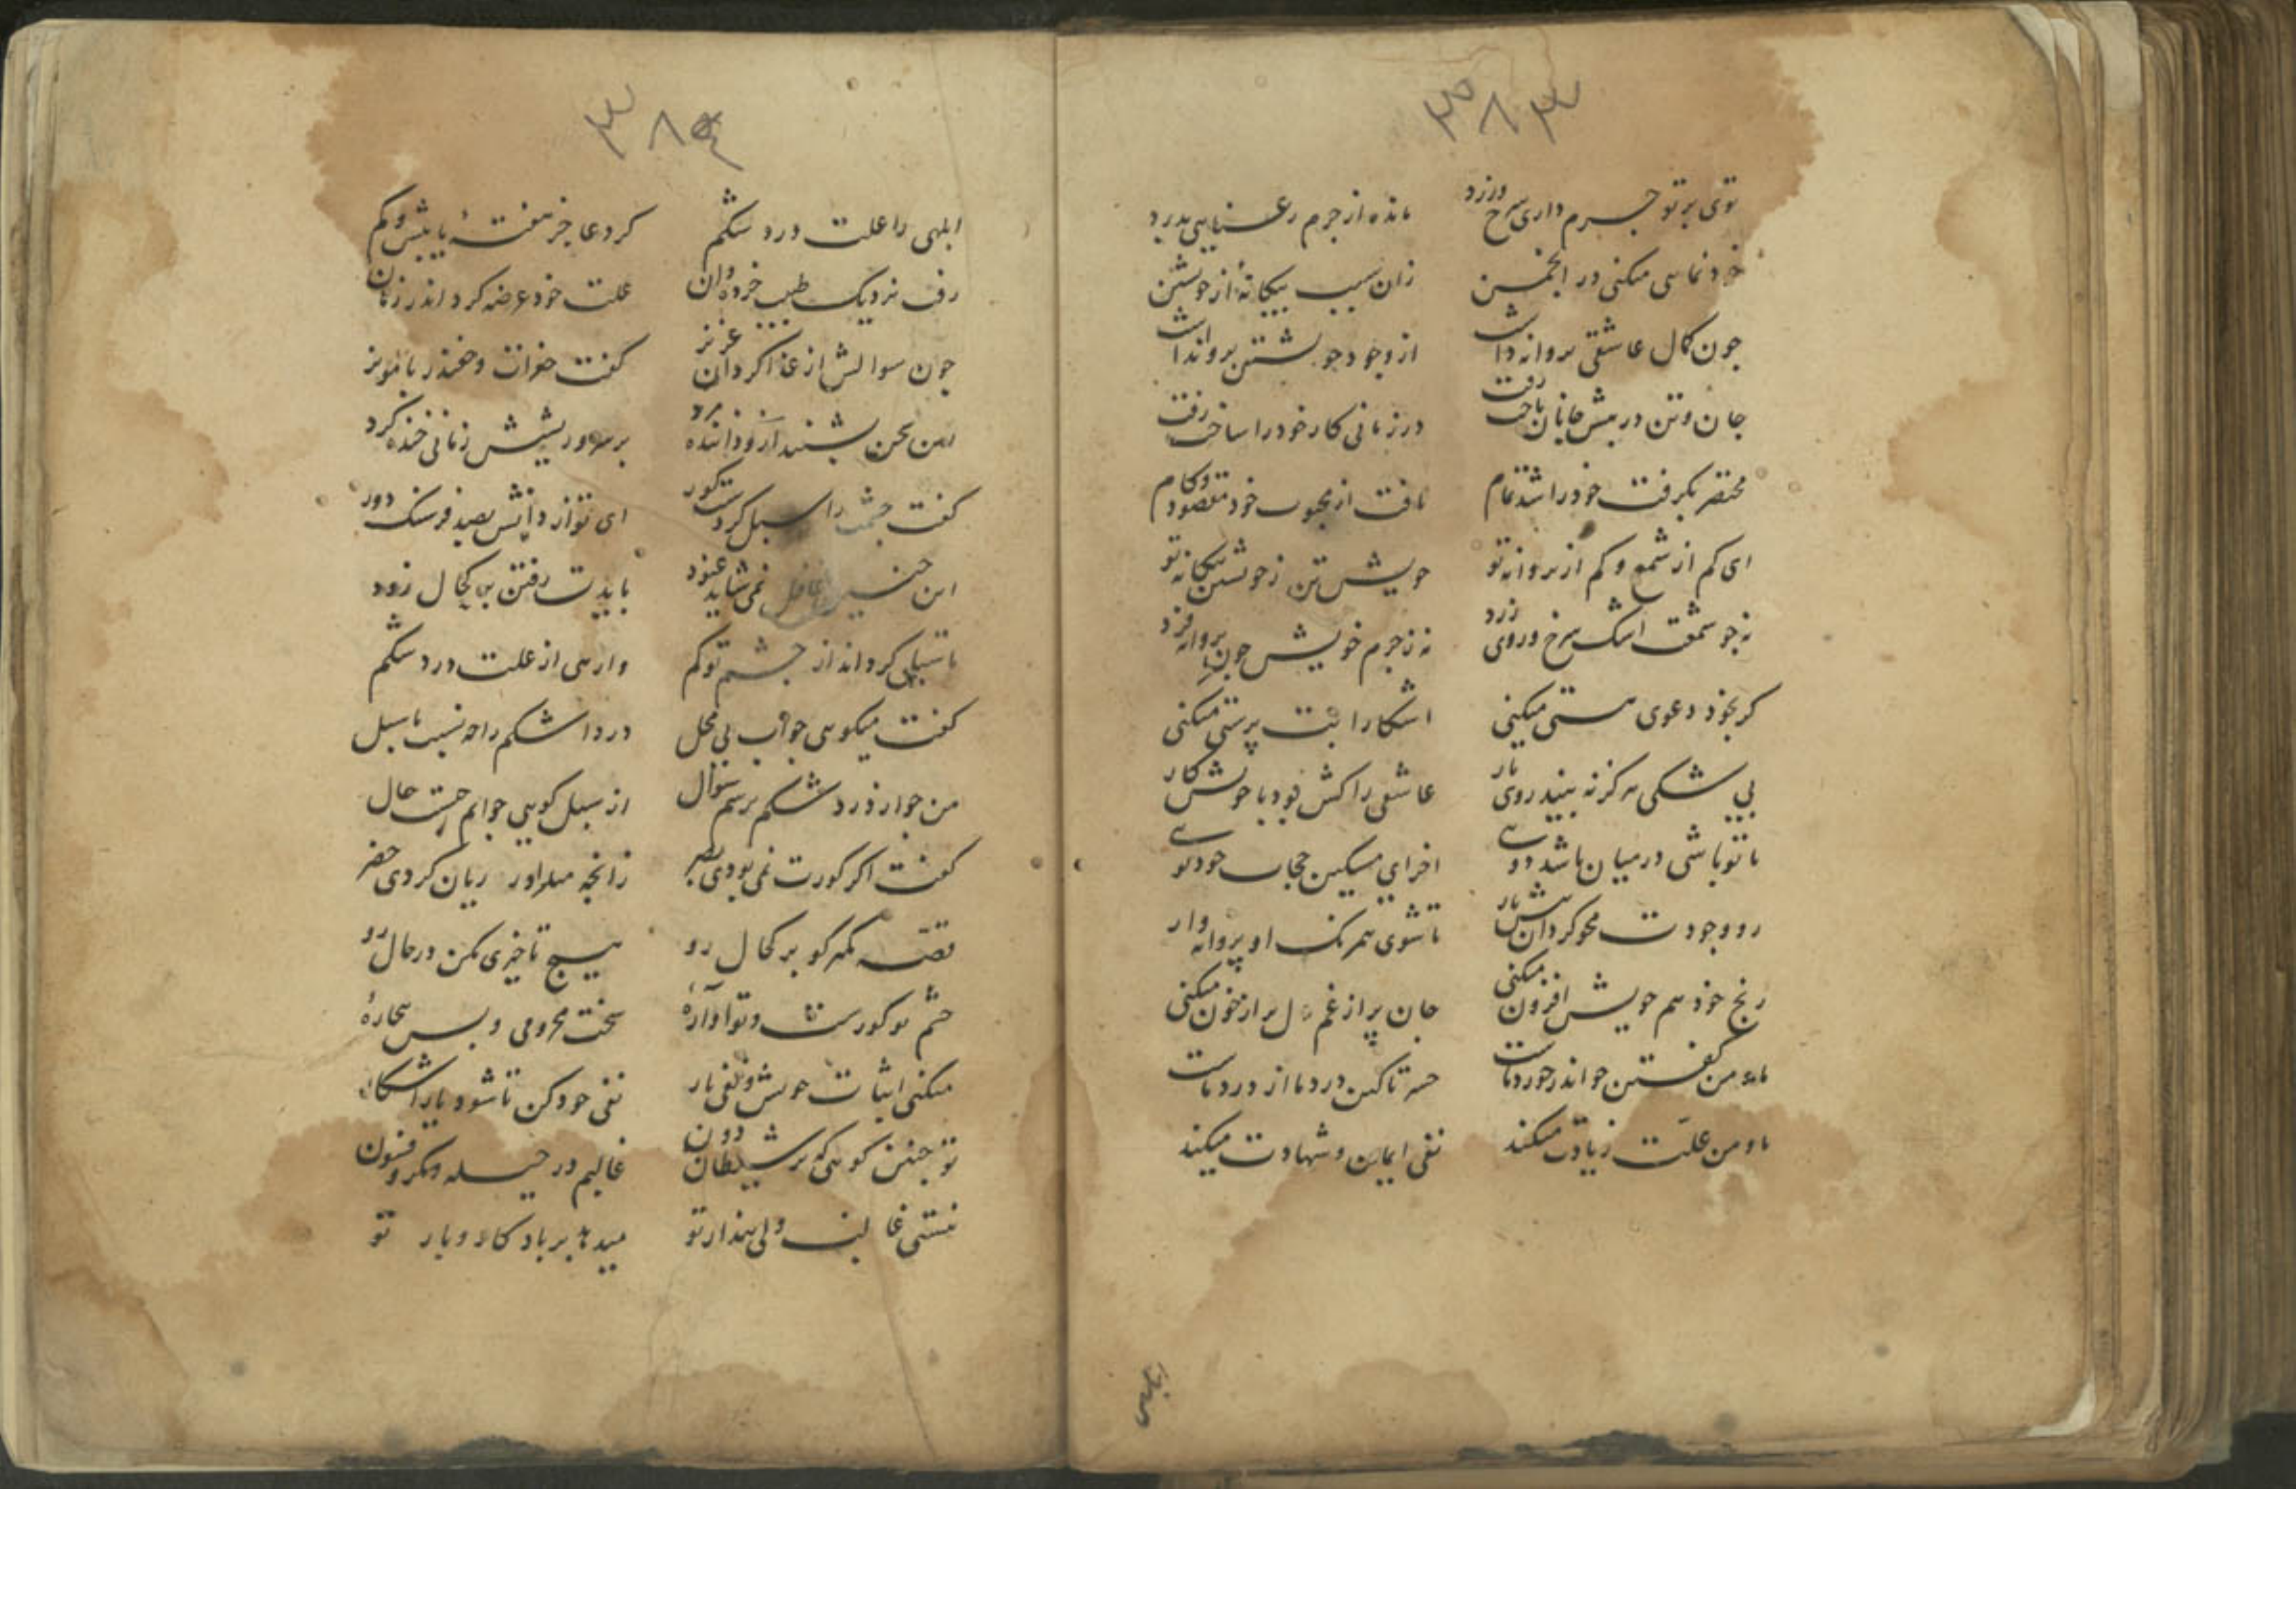 ۳۸۳
توی بر تو جرم داری سرخ و زرد مانده از جرم رعنایی بدرد
خودنمایی میکنی در انجمن زان سبب بیکانهٔ از خویشتن
چون کمال عاشقی بروانه داشت از وجود خویشتن بروا نداشت
جان و تن در بیش جانان باخت رفت در زمانی کار خود را ساخت رفت
مختصر بکرفت خود را شد تمام یافت از محبوب خود مقصود و کام
ای کم از شمع و کم از بروانه تو خویشتن ز خویشتن بیکانه تو
نه جو شمعت اشک سرخ و روی زرد نه ز جرم خویش جون بروانه فرد
کر بخود دعوی هستی میکنی اشکارا بت پرستی میکنی
بی شکی هرکز نه بیند روی یار عاشقی را کش بود با خویش کار
تا تو باشی در میان باشد دوی اخر ای مسکین حجاب خود توی
رو وجودت محو کردان بیش یار تا شوی همرنک او پروانه وار
رنج خود هم خویش افزون میکنی جان پر از غم دل بر از خون میکنی
ما و من کفتن جو اندر خورد ماست خسته تا کین درد ما از درد ماست
ما و من علت زیادت میکند نفی ایمان و شهادت میکند
۳۸۴
ابلهی را علت درد شکم کرد عاجز هفتهٔ یا بیش و کم
رفت نزدیک طبیب خرده دان علت خود عرضه کرد اندر زمان
جون سوالش از غذا کرد ان عزیز کفت
این سخن بشنید ازو داننده مرد بر سر و ریشش زمانی خنده کرد
کفت جشمت را سبل کردست کور ای تو از دانش بصد فرسنک دور
این جنین غافل نمی شاید غنود بایدت رفتن بر کحال زود
تا سبل کرداند از جشم تو کم وارهی از علت درد شکم
کفت میکوی جواب بی محل درد اشکم را جه نسبت با سبل
من جو از درد شکم برسم سوال از سبل کویی جوابم جیست حال
کفت اکر کورت نمی بودی بصر زانجه میدارد زیان کردی حذر
قصه کمتر کو بر کحال رو هیچ تاخیری مکن در حال رو
جشم تو کورست و تو اوارهٔ سخت محرومی و بس بیجارهٔ
میکنی اثبات خویش و نفی یار نفی خود کن تا شود یار اشکار
تو جنین کویی که بر شیطان دون غالبم در حیله و مکر و فسون
نیستی غالب ولی بندار تو میدهد بر باد کار و بار تو